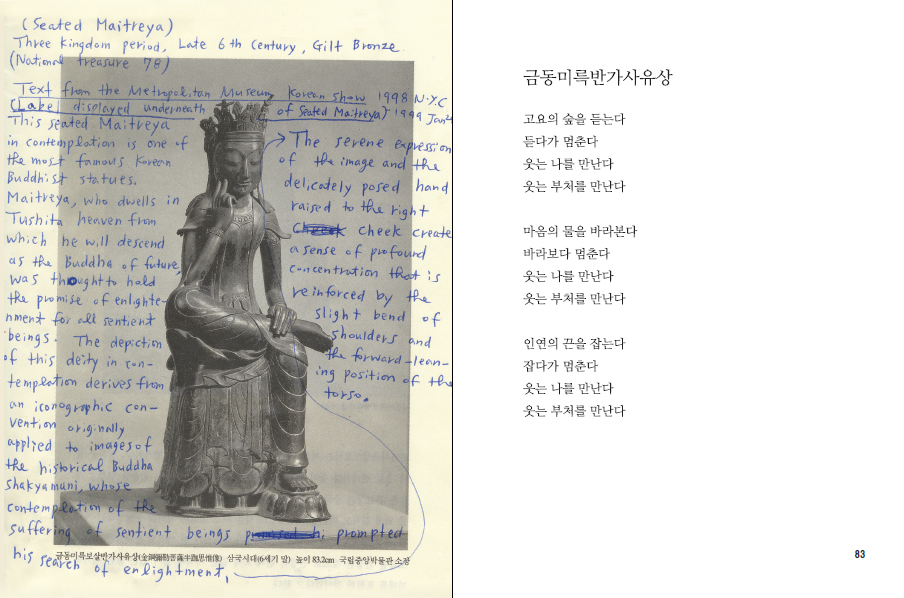 (Seated Maitreya)
Three Kingdom period, Late 6th Century, Gilt Bronze
(National treasure 78)
Text from the Metropolitan Museum Korean show 1998 N.Y.C
(Label displayed underneath of Seated Maitreya) 1999 Jan
This seated Maitreya
in contemplation is one of
the most famous Korean
Buddhist statues.
Maitreya, who dwells in
Tushita heaven from
which he will descend
as the Buddha of future,
was thought to hold
the promise of enlighte-
nment for all sentient
beings. The depiction
of this deity in con-
templation derives from
an iconographic con-
vention originally
applied to images of
the historical Buddha
Shakyamuni, whose
contemplation of the
suffering of sentient beings prompted
his search of enlightment,
The serene expression
of the image and the
delicately posed hand
raised to the right
cheek create
a sense of profound
concentration that is
reinforced by the
slight bend of
shoulders and
the forward-lean-
ing position of the
torso.
금동미륵보살반가사유상(金銅彌勒菩薩半跏思惟像) 삼국시대(6세기 말) 높이 83.2cm 국립중앙박물관 소장
금동미륵반가사유상
고요의 숲을 듣는다
듣다가 멈춘다
웃는 나를 만난다
웃는 부처를 만난다
마음의 물을 바라본다
바라보다 멈춘다
웃는 나를 만난다
웃는 부처를 만난다
인연의 끈을 잡는다
잡다가 멈춘다
웃는 나를 만난다
웃는 부처를 만난다
83